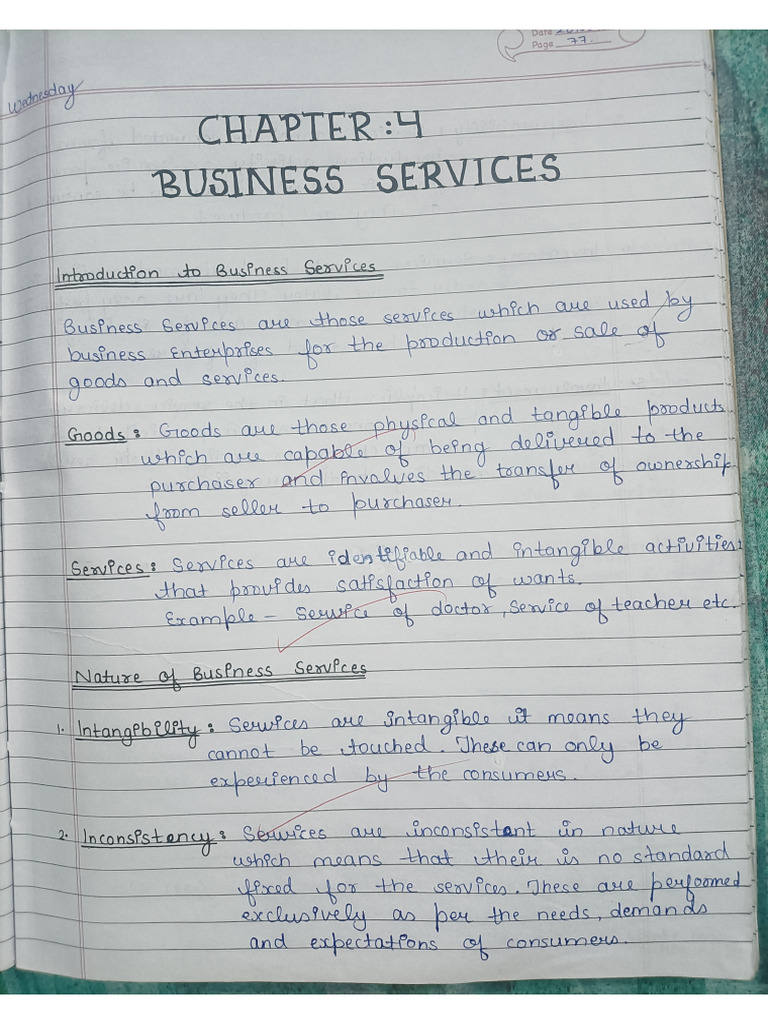 Date
Page 77.
Wednesday
CHAPTER:4
BUSINESS SERVICES
Introduction to Business Services
Business Services are those services which are used by
business Enterprises for the production or sale of
goods and services.
Goods: Goods are those physical and tangible products
which are capable of being delivered to the
purchaser and involves the transfer of ownership
from seller to purchaser.
Services: Services are identifiable and intangible activities
that provides satisfaction of wants.
Example - Service of doctor, Service of teacher etc.
Nature of Business Services
1. Intangibility: Services are intangible it means they
cannot be touched. These can only be
experienced by the consumers.
2. Inconsistency: Services are inconsistent in nature
which means that their is no standard
fixed for the services. These are perfoomed
exclusively as per the needs, demands
and expectations of consumers.